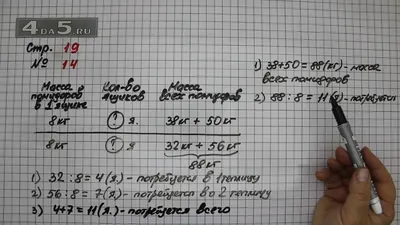 4DA5.RU
Стр. 19
№ 14
Масса помидоров в 1 ящике
Кол-во ящиков
Масса всех помидоров
8кг ? я. 38кг + 50кг
8кг ? я. 32кг + 56кг
88кг
1) 32 : 8 = 4 (я.) - потребуется в 1 теплицу
2) 56 : 8 = 7 (я.) - потребуется во 2 теплицу
3) 4+7 = 11 (я.) - потребуется всего
1) 38+50 = 88 (кг) - масса
всех помидоров
2) 88 : 8 = 11 (я.) - потребуется